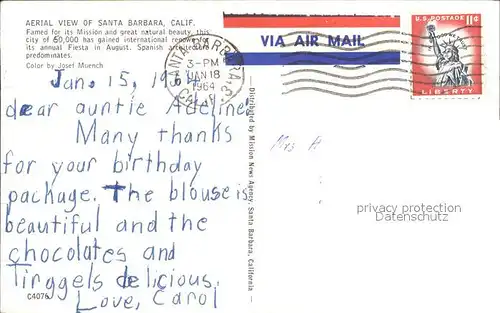 AERIAL VIEW OF SANTA BARBARA, CALIF.
Famed for its Mission and great natural beauty, this
city of 60,000 has gained international for
its annual Fiesta in August. Spanish architecture
predominates.
Color by Josef Muench
VIA AIR MAIL
U.S. POSTAGE 11¢
IN GOD WE TRUST
LIBERTY
SANTA BARBARA, CALIF.
3-PM
JAN 18
1964
Jan. 15, 1964
dear auntie Adeline,
Many thanks
for your birthday
package. The blouse is
beautiful and the
chocolates and
Tirggels delicious.
Love, Carol
C4076
Distributed by Mission News Agency, Santa Barbara, California
Mrs A
privacy protection
Datenschutz